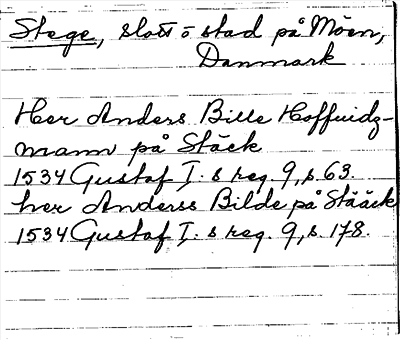 Stege, slott o stad på Möen,
Danmark
Her Anders Bille Hoffuidz-
mann på Stäck
1534 Gustaf I. s reg. 9, s. 63.
her Anderss Bilde på Stääck
1534 Gustaf I. s reg. 9, s. 178.